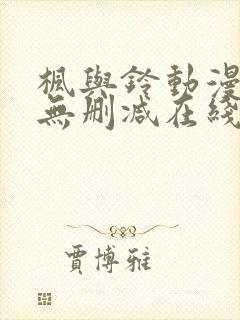 楓與鈴動漫
無刪減在綫
賈博雅